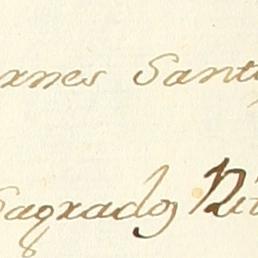 rnes Sant
Sagrados Rit